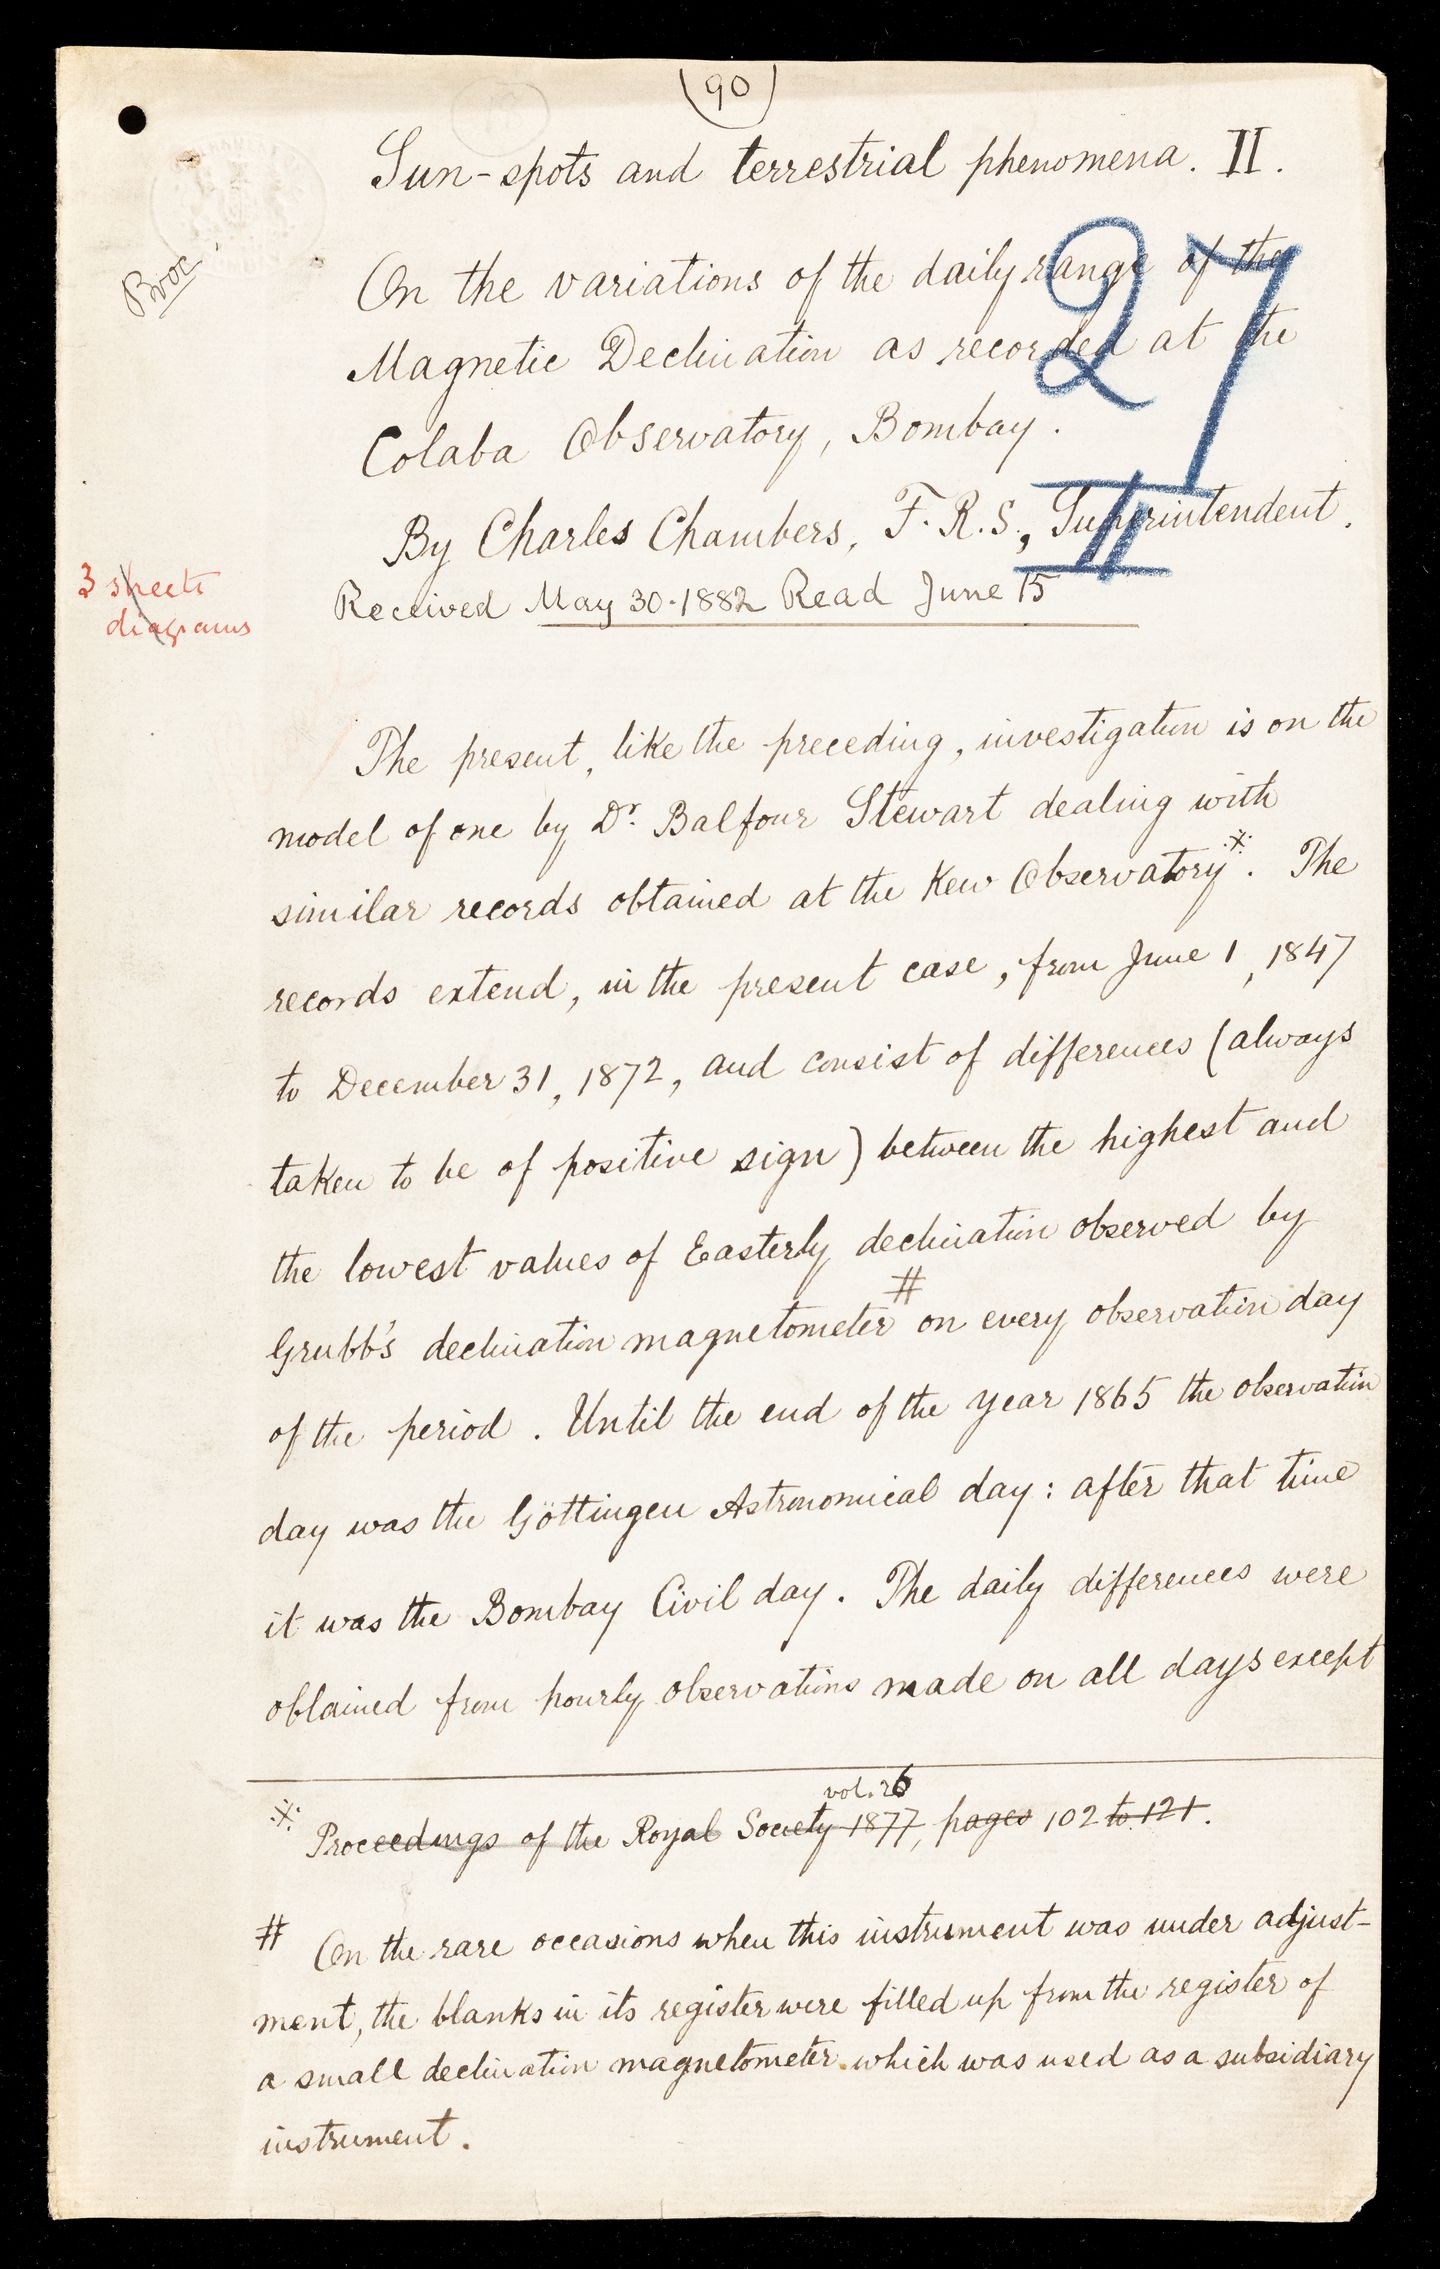 (90)
Sun-spots and terrestrial phenomena. II.
Proc
On the variations of the daily range of the
27
Magnetic Declination as recorded at the
Colaba Observatory, Bombay.
II
By Charles Chambers, F.R.S., Superintendent.
3 sheets
diagrams
Received May 30. 1882 Read June 15
The present, like the preceding, investigation is on the
model of one by Dr. Balfour Stewart dealing with
similar records obtained at the Kew Observatory※. The
records extend, in the present case, from June 1, 1847
to December 31, 1872, and consist of differences (always
taken to be of positive sign) between the highest and
the lowest values of Easterly declination observed by
Grubb's declination magnetometer # on every observation day
of the period. Until the end of the year 1865 the observation
day was the Göttingen Astronomical day: after that time
it was the Bombay Civil day. The daily differences were
obtained from hourly observations made on all days except
vol. 26
※ Proceedings of the Royal Society 1877, pages 102 to 121.
# On the rare occasions when this instrument was under adjust-
ment, the blanks in its register were filled up from the register of
a small declination magnetometer which was used as a subsidiary
instrument.